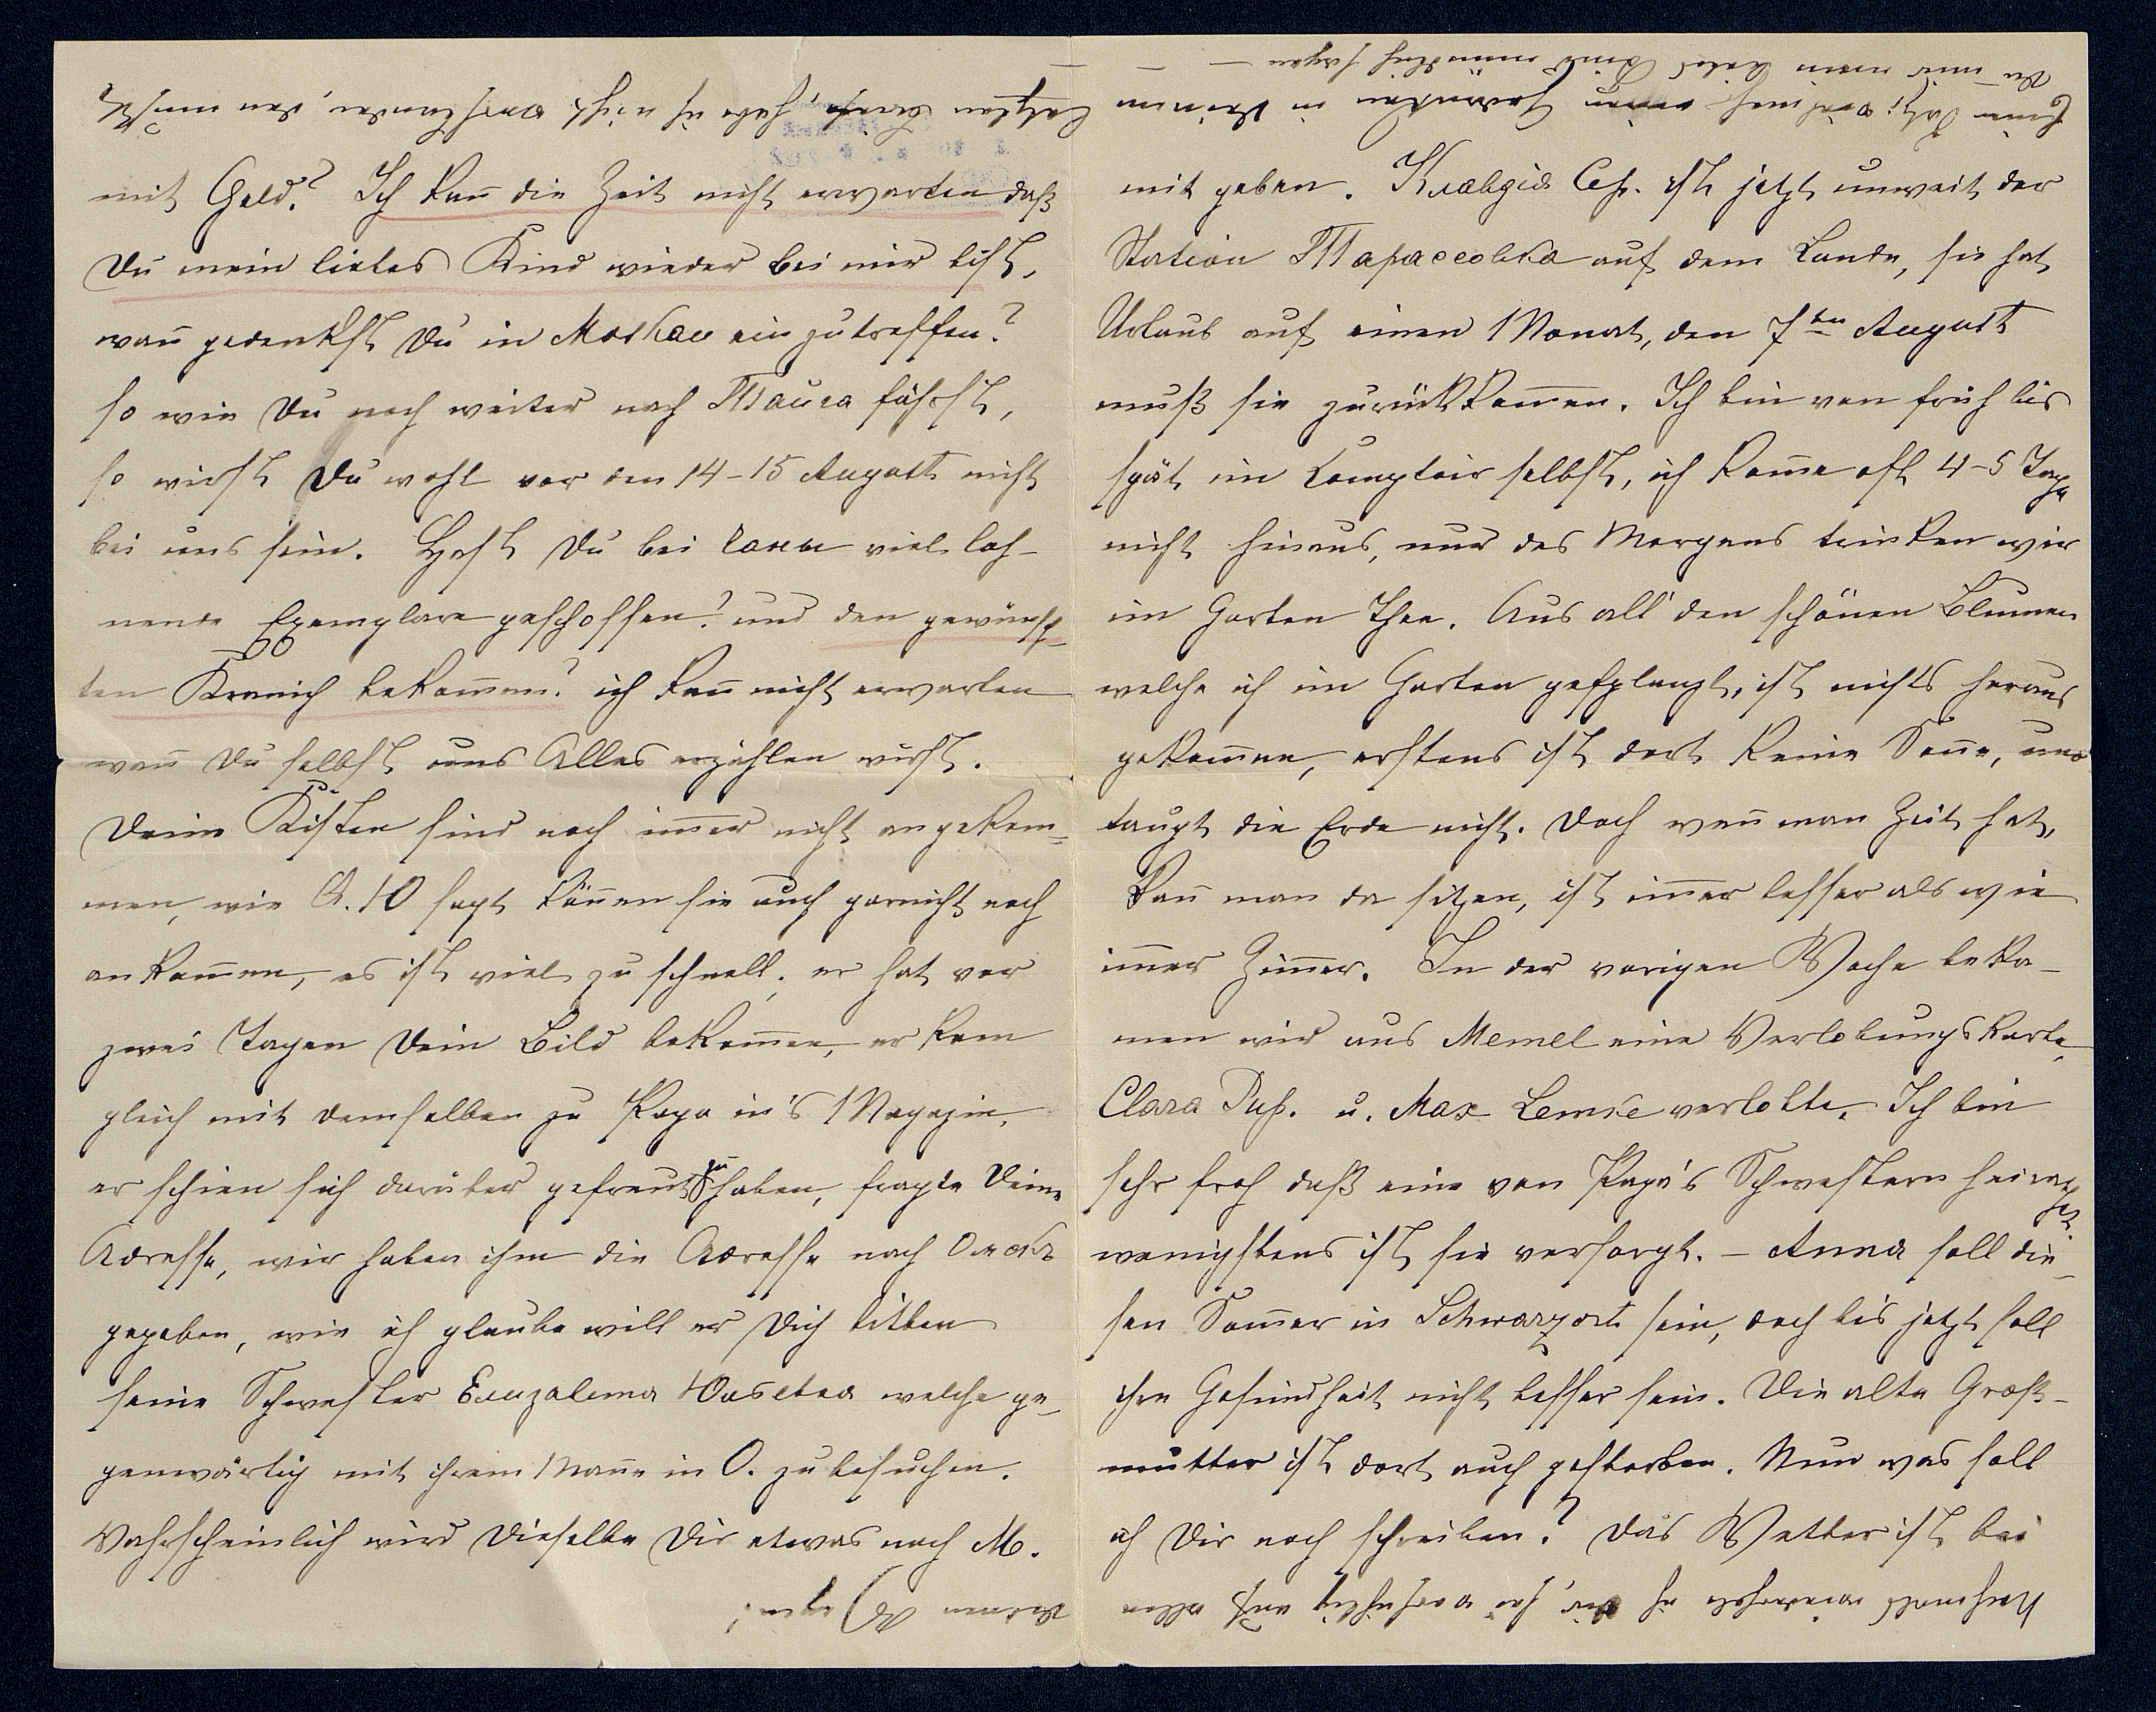 mit Geld? Ich kan̄ die Zeit nicht erwarten daß
Du mein liebes Kind wieder bei mir bist,
wan̄ gedenkst Du in Moskau einzutreffen?
so wie Du noch weiter nach Тайга fährst,
so wirst Du wohl vor den 14-15 August nicht
bei uns sein. Hast Du bei Чаны viel loh-
nende Exemplare geschossen? und den gewünsch-
ten Kranich bekom̄en? ich kan̄ nicht erwarten
wan̄ Du selbst uns Alles erzählen wirst.
Deine Kisten sind noch im̄er nicht angekom-
men, wie А. Ю sagt kön̄en sie auch garnicht noch
ankom̄en, es ist viel zu schnell; er hat vor
zwei Tagen Dein Bild bekom̄en, er kam
gleich mit demselben zu Papa in's Magazin,
er schien sich darüber gefreut zu haben, fragte Deine
Adresse, wir haben ihm die Adresse nach Омскъ
gegeben, wie ich glaube will er Dich bitten
seine Schwester Елизавета Юльевна welche ge-
genwärtig mit ihrem Man̄e in O. zu besuchen.
Wahrscheinlich wird Dieselbe Dir etwas nach M.
mit geben. Клавдія Сер. ist jetzt unweit der
Station Тарасовка auf dem Lande, sie hat
Urlaub auf einen Monat, den 7ten August
muß sie zurückkom̄en. Ich bin von früh bis
spät im Comptoir selbst, ich kom̄e oft 4-5 Tage
nicht hinaus, nur des Morgens trinken wir
im Garten Thee. Aus all' den schönen Blumen
welche ich im Garten gepflanzt, ist nichts heraus
gekom̄en, erstens ist dort keine Son̄e, und
taugt die Erde nicht. Doch wen̄ man Zeit hat,
kan̄ man da sitzen, ist im̄er besser als wie
im̄er Zim̄er. In der vorigen Woche beka-
men wir aus Memel eine Verlobungskarte,
Clara Dup. u. Max Lemke verlobte. Ich bin
sehr froh daß eine von Papa's Schwestern heirathet
wenigstens ist sie versorgt. – Anna soll die-
sen Som̄er in Schwarzort sein, doch bis jetzt soll
ihre Gesundheit nicht besser sein. Die alte Groß-
mutter ist dort auch gestorben. Nun was soll
ich Dir noch schreiben? Das Wetter ist bei
Nochmals wiederhole ich Dir, sei vorsichtig auf allen
Deinen Wegen;
Einen Satz: vielmehr einen Gedanken in Deinem
letzten Briefe, habe ich nicht verstanden, den mußt
Du mir mein liebes Kind mündlich sagen –